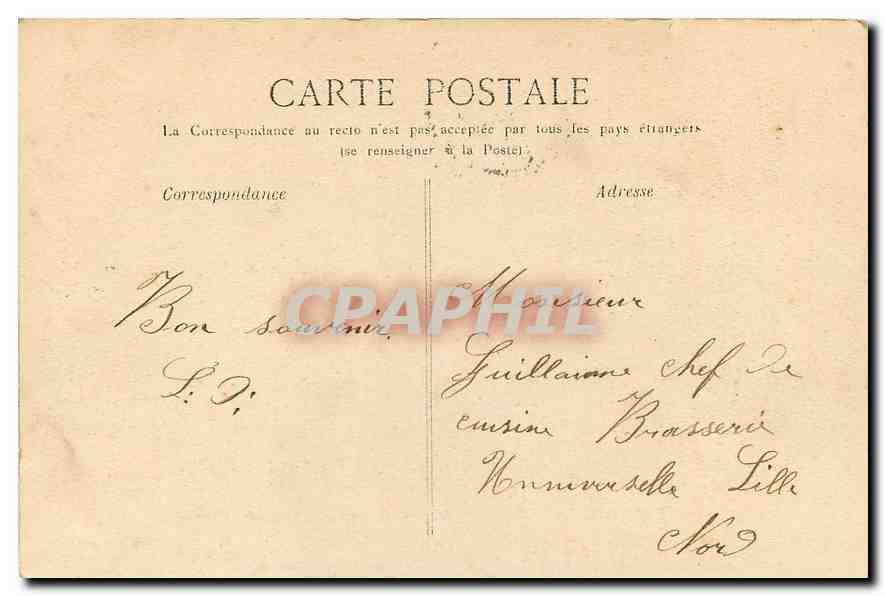 CARTE POSTALE
La Correspondance au recto n'est pas acceptée par tous les pays étrangers
(se renseigner à la Poste)
Correspondance
Adresse
Bon souvenir
L. D.
Monsieur
Guillaume chef de
cuisine Brasserie
Universelle Lille
Nord
CPAPHIL